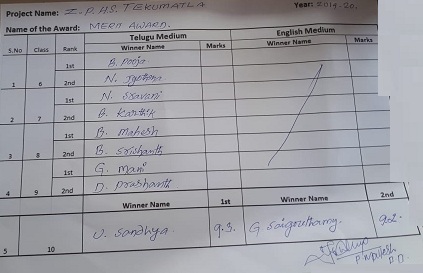 Project Name: Z.P.HS. TEKUMATLA Year: 2019-20.
Name of the Award: MERIT AWARD.
Telugu Medium English Medium
S.No Class Rank Winner Name Marks Winner Name Marks
1st B. Pooja
1 6 2nd N. Jyothna
1st N. Sravani
2 7 2nd B. Karthik
1st B. Mahesh
3 8 2nd B. Srishanth
1st G. Mani
4 9 2nd D. Prashanth
Winner Name 1st Winner Name 2nd
5 10 U. Sandhya. 9.3. G 9.2.